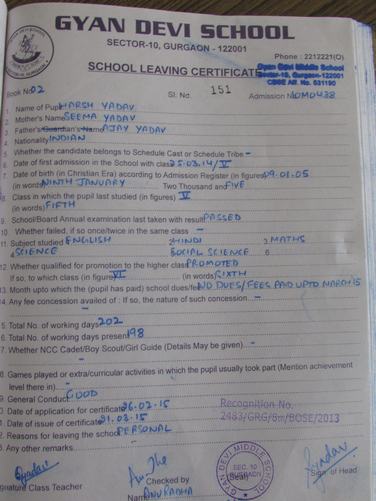 GYAN DEVI SCHOOL
SECTOR-10, GURGAON - 122001
Phone : 2212221(O)
SCHOOL LEAVING CERTIFICATE
Gyan Devi Middle School
Sector-10, Gurgaon-122001
CBSE Afl. No. 531190
Book No. 02 Sl. No. 151 Admission No
1 Name of Pupil HARSH YADAV
2. Mother's Name SEEMA YADAV
3. Father's/Guardian's Name AJAY YADAV
4. Nationality INDIAN
5. Whether the candidate belongs to Schedule Cast or Schedule Tribe -
6. Date of first admission in the School with class 25.03.14/V
7. Date of birth (in Christian Era) according to Admission Register (in figures) 09.01.05
(in words) NINTH JANUARY Two Thousand and FIVE
8. Class in which the pupil last studied (in figures) V
(in words) FIFTH
9. School/Board Annual examination last taken with result PASSED
10. Whether failed, if so once/twice in the same class -
11. Subject studied ENGLISH 2 HINDI 3 MATHS
4 SCIENCE SOCIAL SCIENCE 6
12. Whether qualified for promotion to the higher class PROMOTED
If so, to which class (in figure) VI (in words) SIXTH
13. Month upto which the (pupil has paid) school dues/fee NO DUES/FEES PAID UPTO MARCH 15
14. Any fee concession availed of : If so, the nature of such concession. -
15. Total No. of working days 202
16. Total No. of working days present 198
17. Whether NCC Cadet/Boy Scout/Girl Guide (Details May be given) -
18. Games played or extra/curricular activities in which the pupil usually took part (Mention achievement
level there in). -
19. General Conduct GOOD
20. Date of application for certificate 26.02.15
21. Date of issue of certificate 31.03.15
22. Reasons for leaving the school PERSONAL
23. Any other remarks
Recognition No.
2483/GRG/8m/BOSE/2013
GYAN DEVI MIDDLE SCHOOL
SEC. 10
GURGAON
Signature Class Teacher
Checked by
(Seal)
Sign. of Head
Name ANURADHA